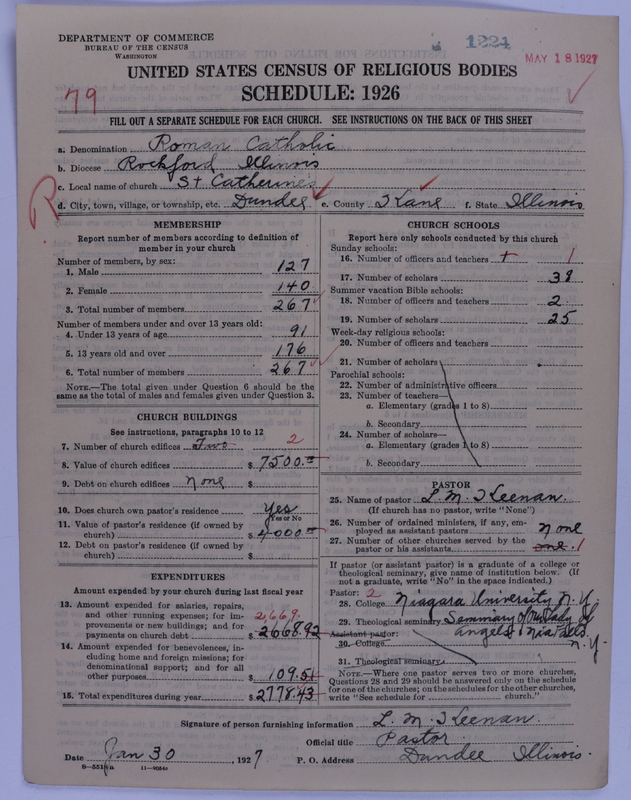 DEPARTMENT OF COMMERCE
BUREAU OF THE CENSUS
WASHINGTON
1224
MAY 18 1927
UNITED STATES CENSUS OF RELIGIOUS BODIES
SCHEDULE: 1926
79
FILL OUT A SEPARATE SCHEDULE FOR EACH CHURCH. SEE INSTRUCTIONS ON THE BACK OF THIS SHEET
a. Denomination Roman Catholic
b. Diocese Rockford Illinois
c. Local name of church St Catherines
d. City, town, village, or township, etc. Dundee e. County Kane f. State Illinois
R
MEMBERSHIP
Report number of members according to definition of
member in your church
Number of members, by sex:
1. Male 127
2. Female 140
3. Total number of members 267
Number of members under and over 13 years old:
4. Under 13 years of age 91
5. 13 years old and over 176
6. Total number of members 267
NOTE.—The total given under Question 6 should be
same as the total of males and females given under Question 3.
CHURCH BUILDINGS
See instructions, paragraphs 10 to 12
7. Number of church edifices Two 2
8. Value of church edifices $ 7500.00
9. Debt on church edifices none $
10. Does church own pastor's residence Yes
Yes or No
11. Value of pastor's residence (if owned by
church) $ 4000.00
12. Debt on pastor's residence (if owned by
church) $
EXPENDITURES
Amount expended by your church during last fiscal year
13. Amount expended for salaries, repairs,
and other running expenses; for im-
provements or new buildings; and for
payments on church debt 2,669. $ 2668.92
14. Amount expended for benevolences, in-
cluding home and foreign missions; for
denominational support; and for all
other purposes $ 109.51
15. Total expenditures during year $ 2778.43
CHURCH SCHOOLS
Report here only schools conducted by this church
Sunday schools:
16. Number of officers and teachers 1
17. Number of scholars 38
Summer vacation Bible schools:
18. Number of officers and teachers 2
19. Number of scholars 25
Week-day religious schools:
20. Number of officers and teachers
21. Number of scholars
Parochial schools:
22. Number of administrative officers
23. Number of teachers—
a. Elementary (grades 1 to 8)
b. Secondary
24. Number of scholars—
a. Elementary (grades 1 to 8)
b. Secondary
PASTOR
25. Name of pastor L. M. Keenan.
(If church has no pastor, write "None")
26. Number of ordained ministers, if any, em-
ployed as assistant pastors none
27. Number of other churches served by the
pastor or his assistants one. 1
If pastor (or assistant pastor) is a graduate of a college or
theological seminary, give name of institution below. (If
not a graduate, write "No" in the space indicated.)
Pastor: 2
28. College Niagara University N. Y.
29. Theological seminary Seminary of our Lady of
Assistant pastor: angels Nia Falls
30. College N. Y.
31. Theological seminary
NOTE.—Where one pastor serves two or more churches,
Questions 28 and 29 should be answered only on the schedule
for one of the churches; on the schedules for the other churches,
write "See schedule for church."
Signature of person furnishing information L. M. Keenan.
Official title Pastor
Date Jan 30, 1927 P. O. Address Dundee Illinois.